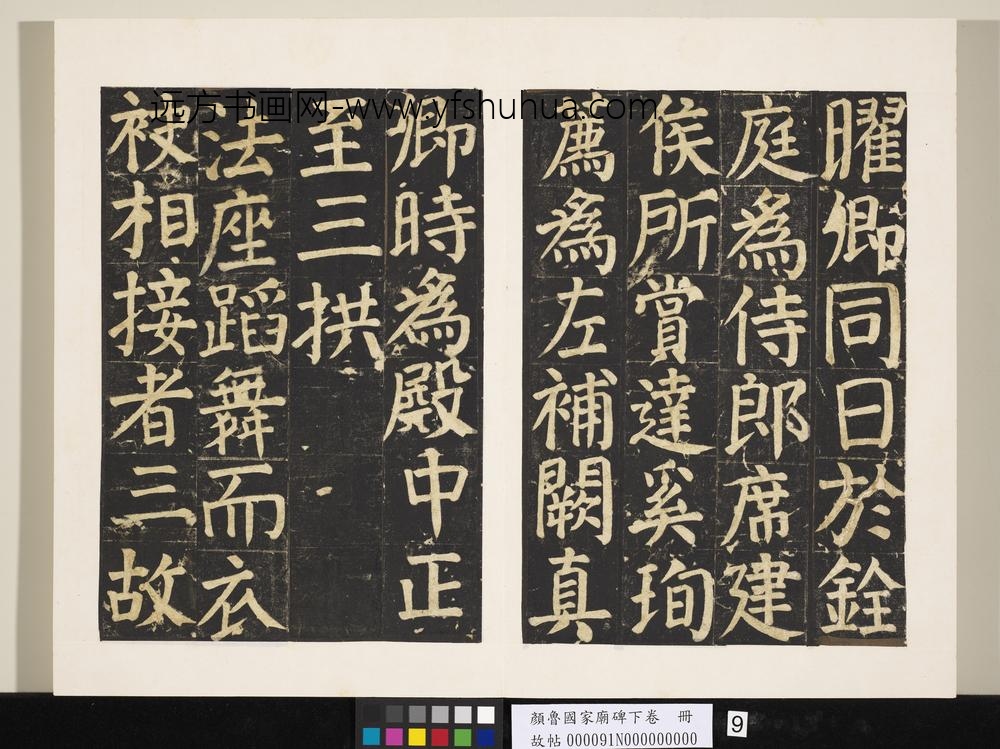 曜卿同日於銓
庭為侍郎席建
侯所賞達奚珣
薦為左補闕真
卿時為殿中正
至三拱
法座蹈舞而衣
衩相接者三故
远方书画网-www.yfshuhua.com
顏魯國家廟碑下卷 冊
故帖 000091N000000000
9